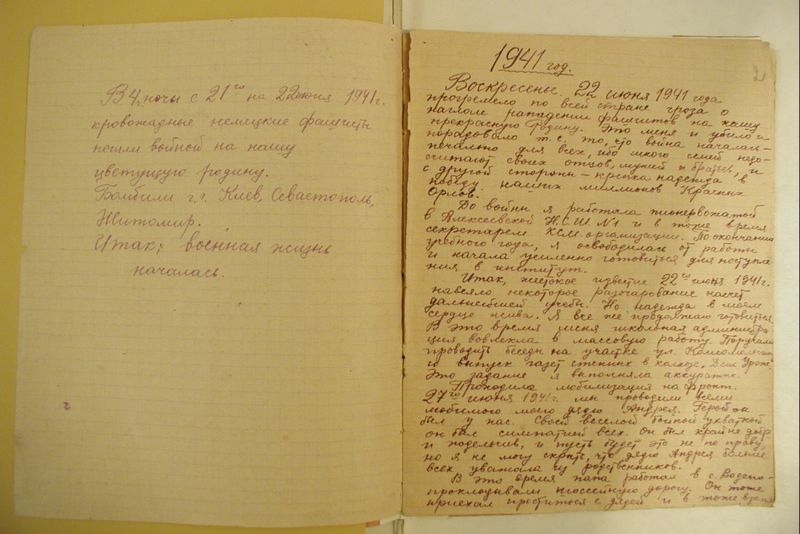 В 4 ночи с 21го на 22 июня 1941 г.
кровожадные немецкие фашисты
пошли войной на нашу
цветущую родину.
Бомбили г.г. Киев, Севастополь,
Житомир.
Итак, военная жизнь
началась.
2
1941 год.
Воскресенье. 22 июня 1941 года
прогремело по всей стране гроза о
наглом нападении фашистов на нашу
прекрасную Родину. Это меня и убило и
порадовало т.е. то, что война началась –
печально для всех, ибо много семей недо-
считают своих отцов, мужей и братьев, и
с другой стороны – крепка надежда в
победу наших миллионов Красных
Орлов.
До войны я работала пионервожатой
в Алексеевской Н.С.Ш. №1 и в тоже время
секретарем КСМ организации. По окончании
учебного года, я освободилась от работы
и начала усиленно готовиться для поступле
ния в институт.
Итак, жестокое известие 22го июня 1941г.
навеяло некоторое разочарование насчет
дальнейшей учебы. Но надежда в моем
сердце жива. Я все же продолжаю готовиться.
В это время меня школьная администра
ция вовлекла в массовую работу. Поручили
проводить беседы на участке ул. Комсомольск
и выпуск газет стенных в колхозе
Это задание я выполняла аккуратно.
Проходила мобилизация на фронт.
27го июня 1941г. мы проводили всеми
любимого моего дядю Андрея. Герой он
был у нас. Своей веселой бойкой ухваткой
он был симпатией всех. Он был крайне добр
и поделочив, и пусть будет это не по праву
но я не могу скрыть, что дядю Андрея больше
всех уважала из родственников.
В это время папа работал в с.
прокладывали шоссейную дорогу. Он тоже
приехал проститься с дядей и в тоже время